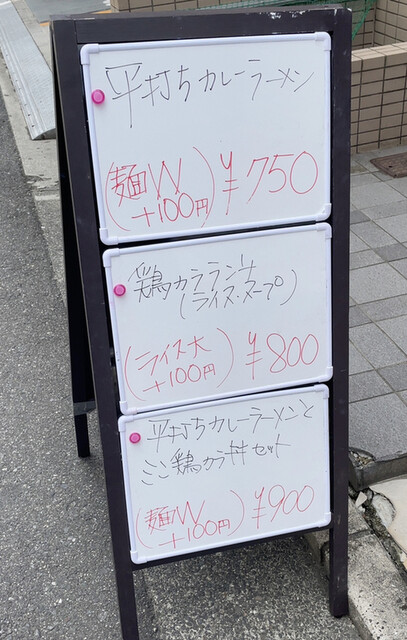 平打ちカレーラーメン
(麺W
+100円)
¥750
鶏カララン井
(ライス・スープ)
(ライス大
+100円)
¥800
平打ちカレーラーメンと
ミニ鶏カラ丼セット
(麺W
+100円)
¥900